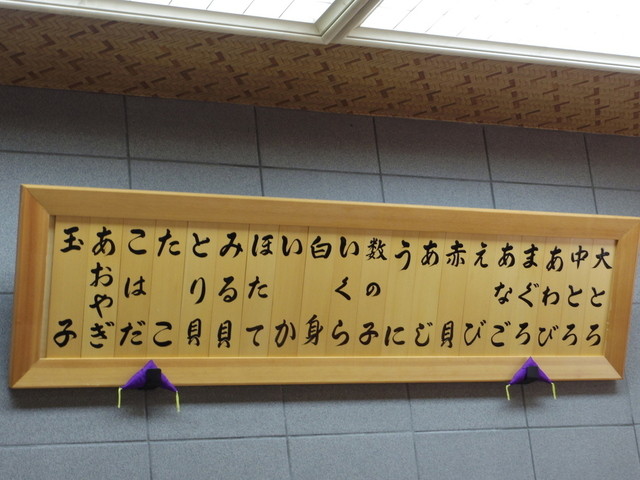 大とろ
中とろ
あわび
まぐろ
あなご
えび
赤貝
あじ
うに
数の子
いくら
白身
いか
ほたて
みる貝
とり貝
たこ
こはだ
あおやぎ
玉子